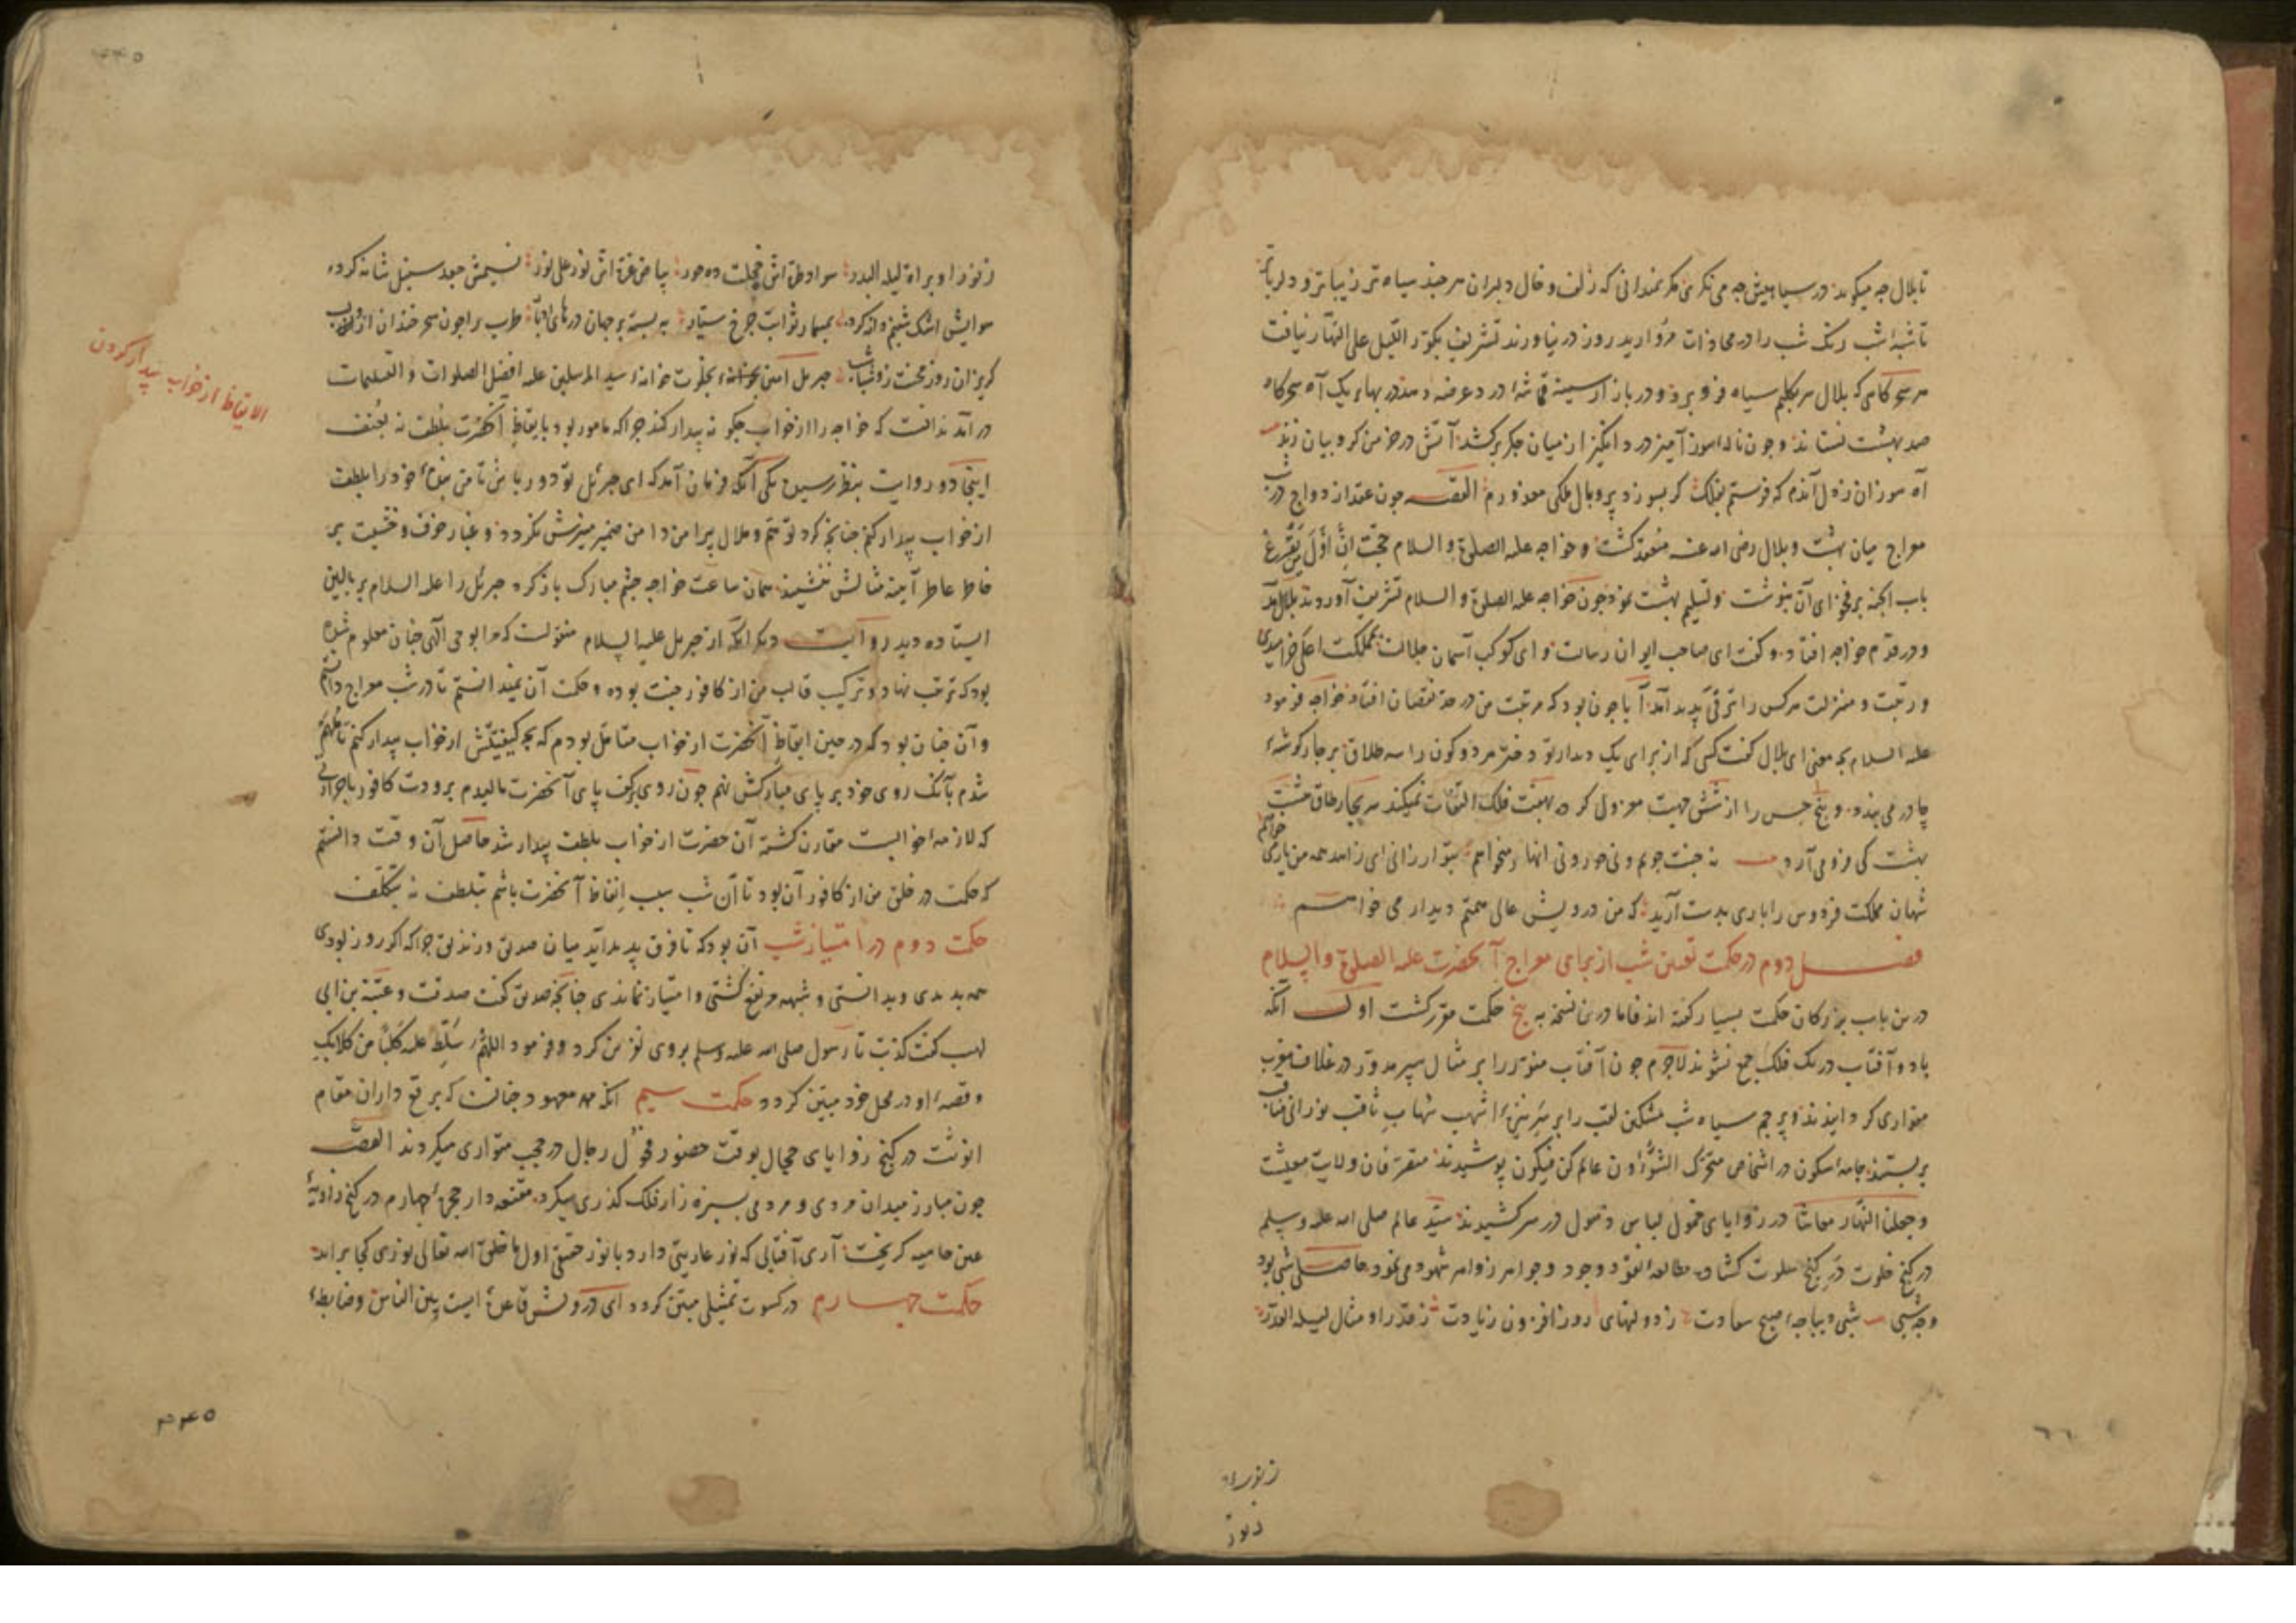 تا بلال چه میکوید در سیاهیش چه می نکری مکر نمیدانی که زلف و خال دلبران هر چند سیاه تر زیباتر و دلربا تر
تا شبه شب رنک شب را در محاذات مروارید روز در نیاورند تشریف یکور اللیل علی النهار نیافت
هر سحرکاهی که بلال سر بکلیم سیاه فرو برد و در بازار سینه در عرضه دهد در بهاء یک آه سحرکاه
صد بهشت بستاند و چون ناله سوز آمیز درد انکیز از میان جکر برکشد آتش در خرمن کروبیان زند
آه سوزان ز دل آندم که فرستم بفلک کر بسوزد پر و بال ملکی معذورم القصه چون عقد ازدواج در شب
معراج میان بهشت و بلال رضی الله عنه منعقد کشت و خواجه علیه الصلوة و السلام حجت ان اول من یقرع
باب الجنة بر فحوای آن بنوشت و تسلیم بهشت نمود چون خواجه علیه الصلوة و السلام تشریف آوردند بلال
و در قدم خواجه افتاد و کفت ای صاحب ایوان رسالت و ای کوکب آسمان جلالت بمملکت اعلی خرامیدی
و رتبت و منزلت هرکس را ترقی پدید آمد آیا چون بود که مرتبت من در حد نقصان افتاد خواجه فرمود
علیه السلام بچه معنی ای بلال کفت کسی که از برای یک دیدار تو دختر هر دو کون را سه طلاق بر چار کوشهء
چادر می بندد و پنج حس را از شش جهت معزول کرده بهفت فلک التفات نمیکند سر بچار طاق هشت
بهشت کی فرو می آرد نه جنت جویم و نی حور و نی انهار میخواهم بتو ارزانی ای زاهد همه من یار می خواهم
شهان مملکت فردوس را باری بدست آرید که من درویش عالی همتم دیدار می خواهم
فصل دوم در حکمت تعیین شب از برای معراج آنحضرت علیه الصلوة و السلام
درین باب بزرکان حکمت بسیار کفته اند فاما درین نسخه به پنج حکمت مقرر کشت اول آنکه
ماه و آفتاب در یک فلک جمع نشوند لاجرم چون آفتاب منور را بر مثال سپر مدور در غلاف مغرب
متواری کردانیدند و پرچم سیاه شب مشکین لقب را بر سر نیزهء اشهب شهاب ثاقب نورانی
بربستند جامه سکون در اشخاص متحرک الشؤون عالم کن فیکون پوشیدند متصرفان ولایت معیشت
وجعلنا النهار معاشا در زوایای خمول لباس ذهول در سر کشیدند سید عالم صلی الله علیه وسلم
در کنج خلوت در کنج سلوت کشاده مطالعه نقود وجود و جواهر زواهر شهود می نمود حاصل شبی بود
و چه شبی شبی دیباچهء صبح سعادت ز دولتهای روز افزون زیادت ز قدر او مثال لیلة القدر
ز نور او
ز نور
ز نور او براة لیلة البدر سواد طره اش خجلت ده حور بیاض غره اش نور علی نور نسیمش جعد سنبل شانه کرده
هوایش اشک شبنم دانه کرده بمسمار ثوابت چرخ سیار ببسته بر جهان درهای ادبار طرب را چون سحر خندان ازو لب
کریزان روز محنت زو شباشب جبریل امین بخلوت خانهء سید المرسلین علیه افضل الصلوات و التسلیمات
در آمد ندانست که خواجه را از خواب چکونه بیدار کند چرا که مامور بود بایقاظ آنحضرت بلطف نه بعنف
اینجا دو روایت بنظر رسیده یکی آنکه فرمان آمد که ای جبرئل تو دور باش تا من بندهء خود را بلطف
از خواب بیدار کنم چنانچه کرد توهم و ملال پیرامن دامن ضمیر منیرش نکردد و غبار خوف و خشیت بر
خاطر عاطر آینه مثالش ننشیند همان ساعت خواجه چشم مبارک باز کرد جبرئل را علیه السلام بر بالین
ایستاده دید روایت دیکر آنکه از جبریل علیه السلام منقولست که مرا بوحی الهی چنان معلوم شده
بود که ترتیب نهاد و ترکیب قالب من از کافور جنت بوده و حکمت آن نمیدانستم تا در شب معراج دانستم
و آن چنان بود که در حین ایقاظ آنحضرت از خواب متامل بودم که بچه کیفیتش از خواب بیدار کنم تا ملهم
شدم بآنکه روی خود بر پای مبارکش نهم چون روی بر کف پای آنحضرت مالیدم برودت کافور با حرارتی
که لازمهء خوابست مقارن کشته آن حضرت از خواب بلطف بیدار شد حاصل آن وقت دانستم
که حکمت در خلق من از کافور آن بود تا آن شب سبب ایقاظ آنحضرت باشم بتلطف نه بتکلف
حکمت دوم در امتیاز شب آن بود که تا فرق پدید آید میان صدیق و زندیق چرا که اکر روز بودی
همه بدیدی و بدانستی و شبهه مرتفع کشتی و امتیاز نماندی چنانچه صدیق کفت صدقت و عتبة بن ابی
لهب کفت کذبت تا رسول صلی الله علیه وسلم بروی نفرین کرد و فرمود اللهم سلط علیه کلبا من کلابک
و قصهء او در محل خود مبین کردد حکمت سیم آنکه معهود چنانست که برقع داران مقام
انوثت در کنج زوایای حجال بوقت حضور فحول رجال در حجب متواری میکردند القصه
چون مبارز میدان مردی و مردمی بسبزه زار فلک کذری میکرد مقنعه دار حجرهء چهارم در کنج زاویهء
عین حامیه کریخت آری آفتابی که نور عاریتی دارد با نور حقیقی اول ما خلق الله تعالی نوری کجا برابر آید
حکمت چهارم در کسوت تمثیلی مبین کردد ای درویش قاعدهء ایست بین الناس و ضابطهء
الایقاظ از خواب بیدار کردن